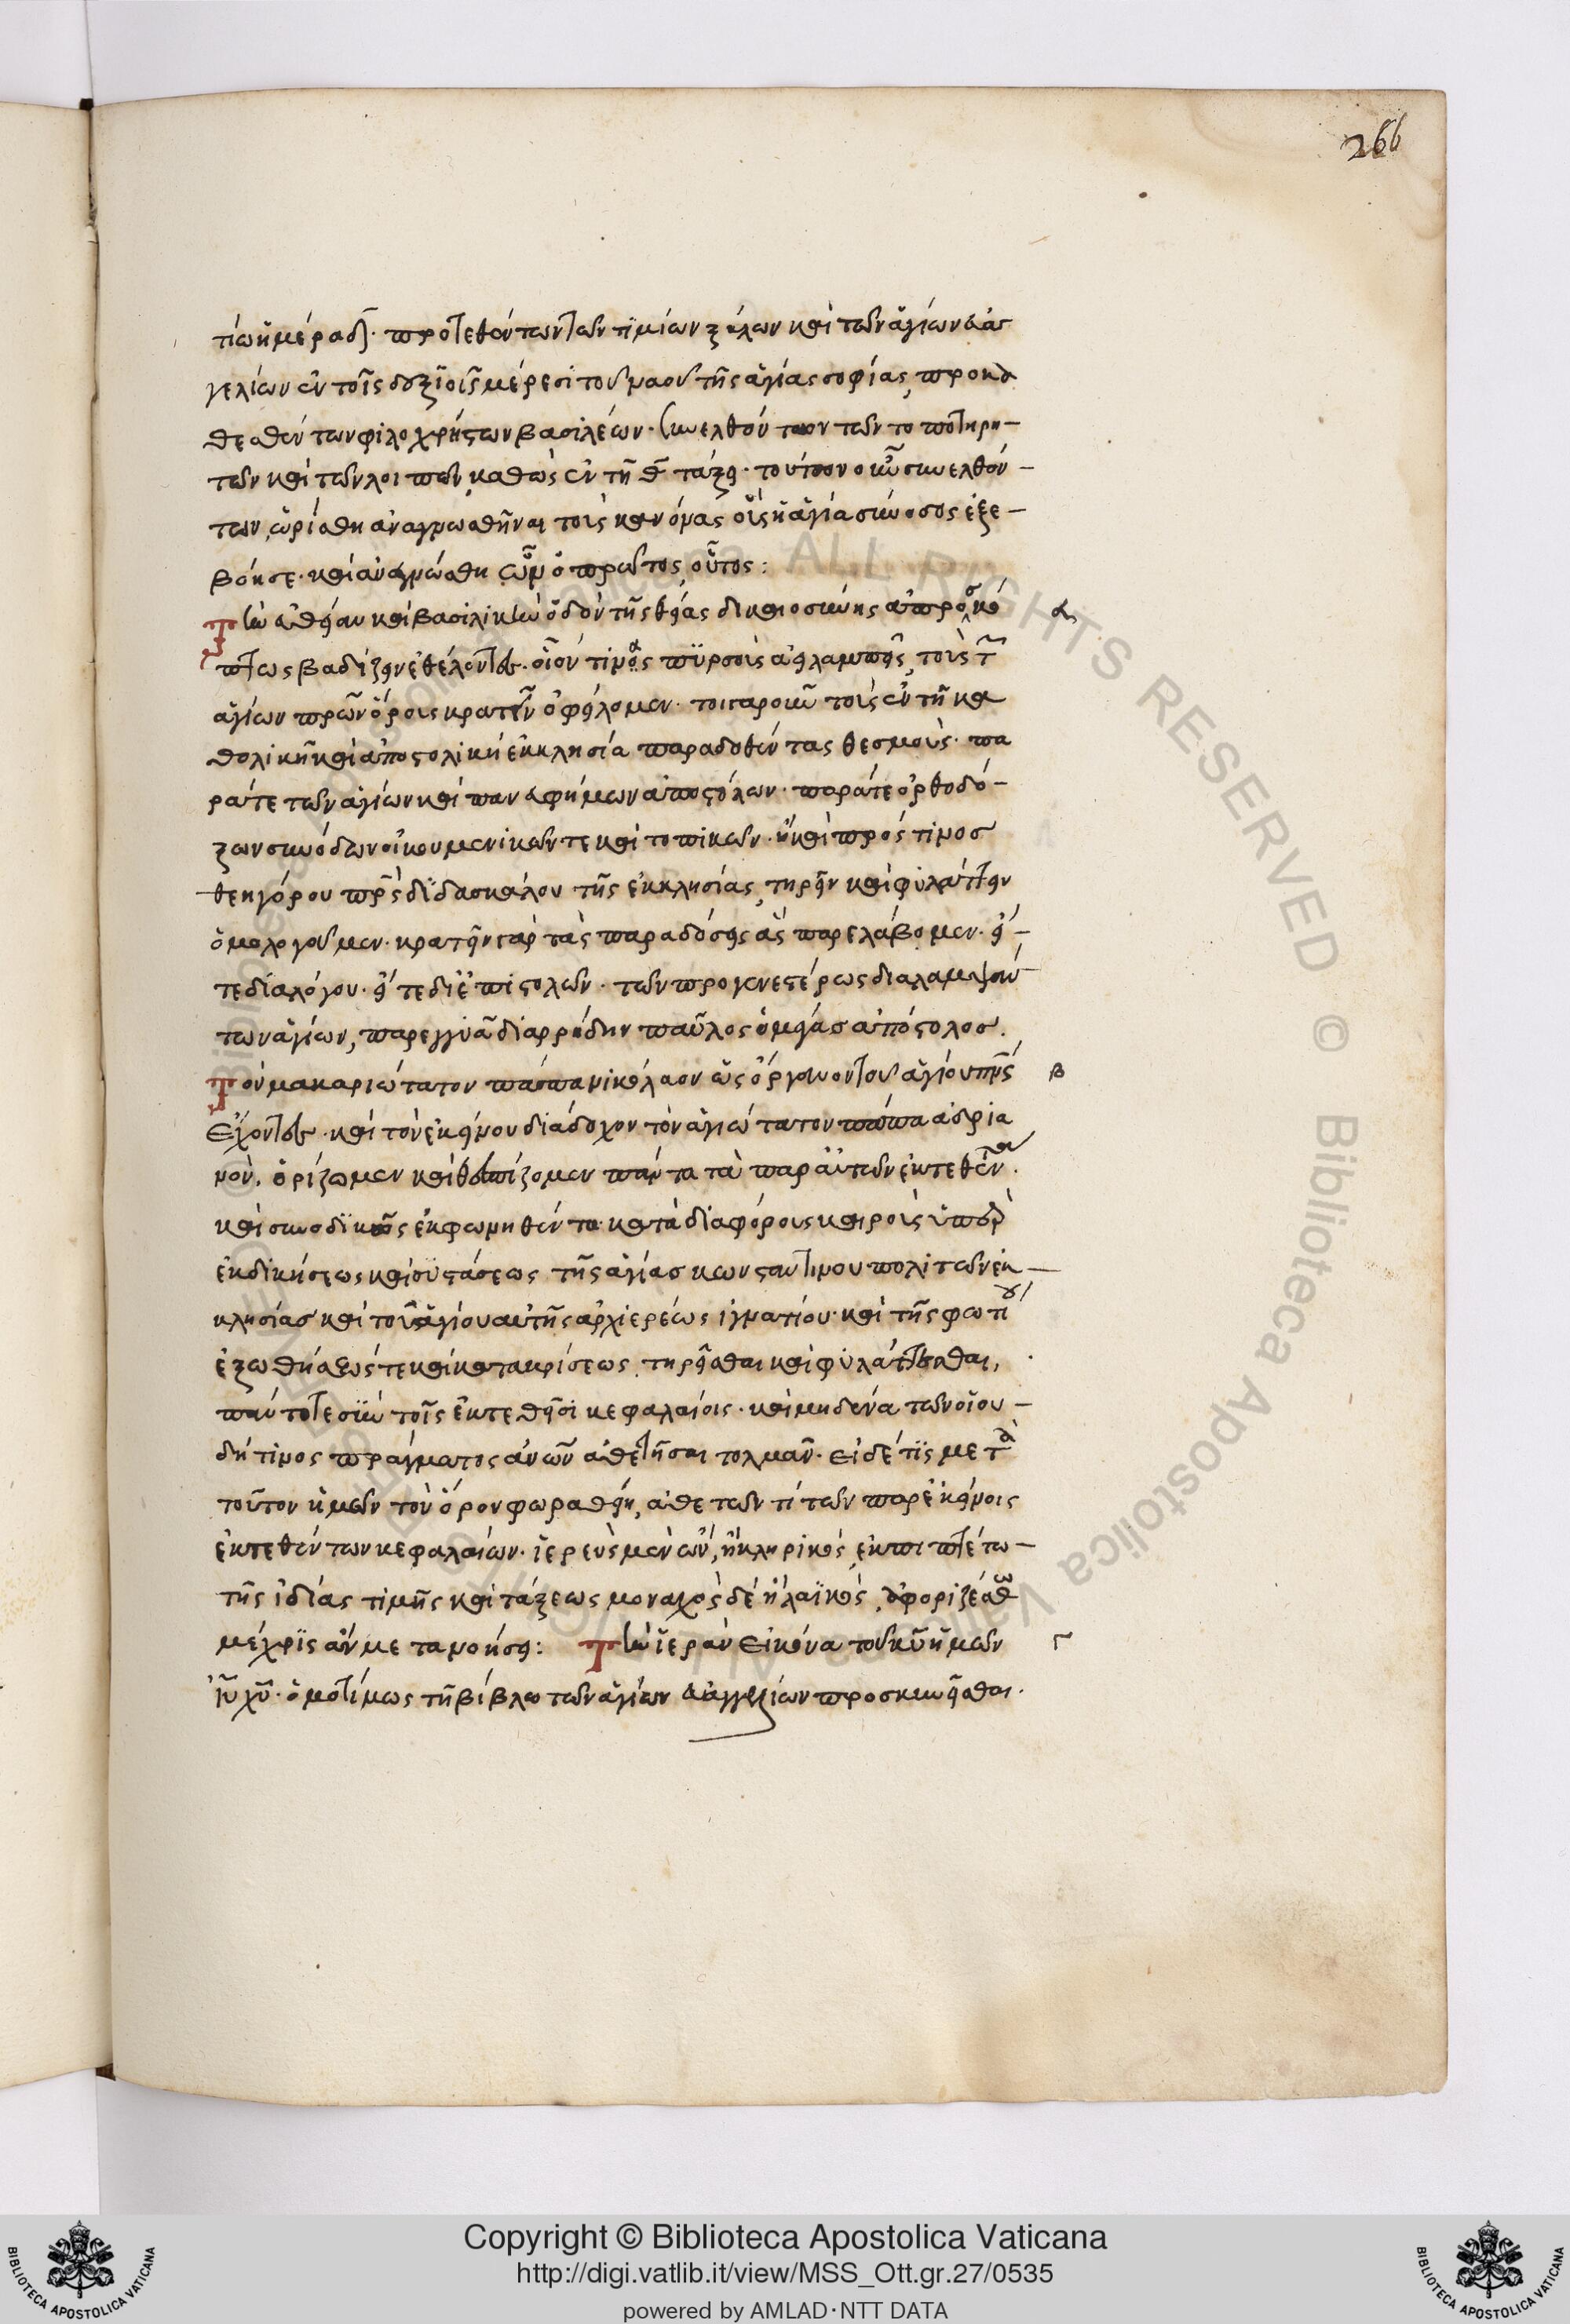 266
τίω ἡμέρα δ. προτεθέντων τῶν τιμίων ξύλων καὶ τῶν ἁγίων εὐαγ
γελίων ἐν τοῖς δεξιοῖς μέρεσι τοῦ ναοῦ τῆς ἁγίας σοφίας, προκα
θεσθέντων φιλοχρίστων βασιλέων. συνελθόντων τῶν τοποτηρη-
τῶν καὶ τῶν λοιπῶν, καθὼς ἐν τῇ θ τάξει. τούτων οὖν συνελθόν-
των, ὡρίσθη ἀναγνωσθῆναι τοὺς κανόνας οὓς ἡ ἁγία σύνοδος ἐξε-
βόησε. καὶ ἀνεγνώσθη ὁ πρῶτος οὗτος:
Τὴν εὐθεῖαν καὶ βασιλικὴν ὁδὸν τῆς θείας δικαιοσύνης ἀπροσκό
α
πτως βαδίζειν ἐθέλοντες. οἷόν τινας πυρσοὺς ἀειλαμπεῖς, τοὺς τῶν
ἁγίων πρων ὅρους κρατεῖν ὀφείλομεν. τοιγαροῦν τοὺς ἐν τῇ κα
θολικῇ καὶ ἀποστολικῇ ἐκκλησίᾳ παραδοθέντας θεσμούς. πα
ρά τε τῶν ἁγίων καὶ πανευφήμων ἀποστόλων. παρά τε ὀρθοδό-
ξων συνόδων οἰκουμενικῶν τε καὶ τοπικῶν. ἢ καὶ πρός τινος
θεηγόρου πρς διδασκάλου τῆς ἐκκλησίας, τηρεῖν καὶ φυλάττειν
ὁμολογοῦμεν. κρατεῖν γὰρ τὰς παραδόσεις ἃς παρελάβομεν. εἴ-
τε διὰ λόγου. εἴ τε δι ἐπιστολῶν. τῶν προγενεστέρως διαλαμψάν
των ἁγίων, παρεγγυᾷ διαρρήδην παῦλος ὁ μέγας ἀπόστολος.
Τὸν μακαριώτατον πάπα νικόλαον ὡς ὄργανον τοῦ ἁγίου πνς
β
ἔχοντες. καὶ τὸν ἐκείνου διάδοχον τὸν ἁγιώτατον πάπα ἀδρια
νόν. ὁρίζομεν καὶ θεσπίζομεν πάντα τὰ παρ αὐτῶν ἐκτεθέντα.
καὶ συνοδικῶς ἐκφωνηθέντα κατὰ διαφόρους καιροὺς ὑπὲρ
ἐκδικήσεως καὶ συστάσεως τῆς ἁγίας κωνσταντινουπολιτῶν ἐκ-
κλησίας καὶ τοῦ ἁγίου αὐτῆς ἀρχιερέως ἰγνατίου. καὶ τῆς φωτίου
ἐξωθήσεώς τε καὶ κατακρίσεως. τηρεῖσθαι καὶ φυλάττεσθαι,
πάντοτε σὺν τοῖς ἐκτεθεῖσι κεφαλαίοις. καὶ μηδένα τῶν οἵου-
δήτινος πράγματος ἀνων ἀθετῆσαι τολμᾶν. εἰ δέ τις μετὰ
τοῦτον ἡμῶν τὸν ὅρον φωραθείη, ἀθετῶν τι τῶν παρ ἐκείνοις
ἐκτεθέντων κεφαλαίων. ἱερεὺς μὲν ὤν, ἢ κληρικός, ἐκπιπτέτω-
τῆς ἰδίας τιμῆς καὶ τάξεως μοναχὸς δὲ ἢ λαϊκός, ἀφοριζέσθω
μέχρις ἂν μετανοήσῃ: Τὴν ἱερὰν εἰκόνα τοῦ κυ ἡμῶν
γ
ιυ χυ. ὁμοτίμως τῇ βίβλῳ τῶν ἁγίων εὐαγγελίων προσκυνεῖσθαι.
Copyright © Biblioteca Apostolica Vaticana
http://digi.vatlib.it/view/MSS_Ott.gr.27/0535
powered by AMLAD·NTT DATA